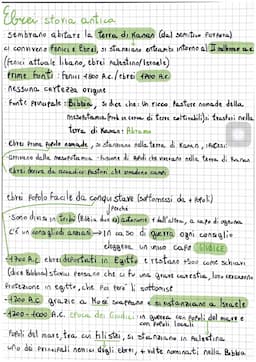 Ebrei storia antica
- sembrano abitare la terra di Kanan (dal semitico porpora)
ci convivono fenici e Ebrei, si stanziano entrambi intorno al II millennio a.C.
(fenici attuale libano, ebrei Palestina/Israele)
Prime fonti: fenici 1500 A.C./ebrei 1200 A.C.
- nessuna certezza origine
Fonte principale: Bibbia, si dice che: Un ricco pastore nomade della
mesopotamia (in cerca di terre coltivabili): trasferì nella
terra di Kanan: Abramo
ebrei prima popolo nomade, si stanziano nella terra di Kanan,
arrivano dalla mesopotamia - fusione di popoli che vivevano nella terra di Kanan
Ebrei deriva da accadico pastori che vendono carni
ebrei popolo facile da conquistare (sottomessi da + popoli)
perché
- Sono divisi in Tribù (Bibbia dice 12) autonome + dall'altra, a capo di ognuna
c'è un consiglio di anziani → in caso di guerra ogni consiglio
eleggeva un unico capo GIUDICE
- 1700 A.C. ebrei deportati in Egitto e restano 500 come schiavi
(dice Bibbia) storici pensano che ci fu una grave carestia, loro cercarono
Protezione in egitto, che poi però li sottomise
- 1200 A.C. grazie a Mosè scappano e si stanziano a Israele
- 1200-1000 A.C. epoca dei Giudici in guerra con popoli del mare e
con popoli locali
Popoli del mare, tra cui Filistei, si stanziano in Palestina
uno dei principali nemici degli ebrei, + volte nominati nella Bibbia